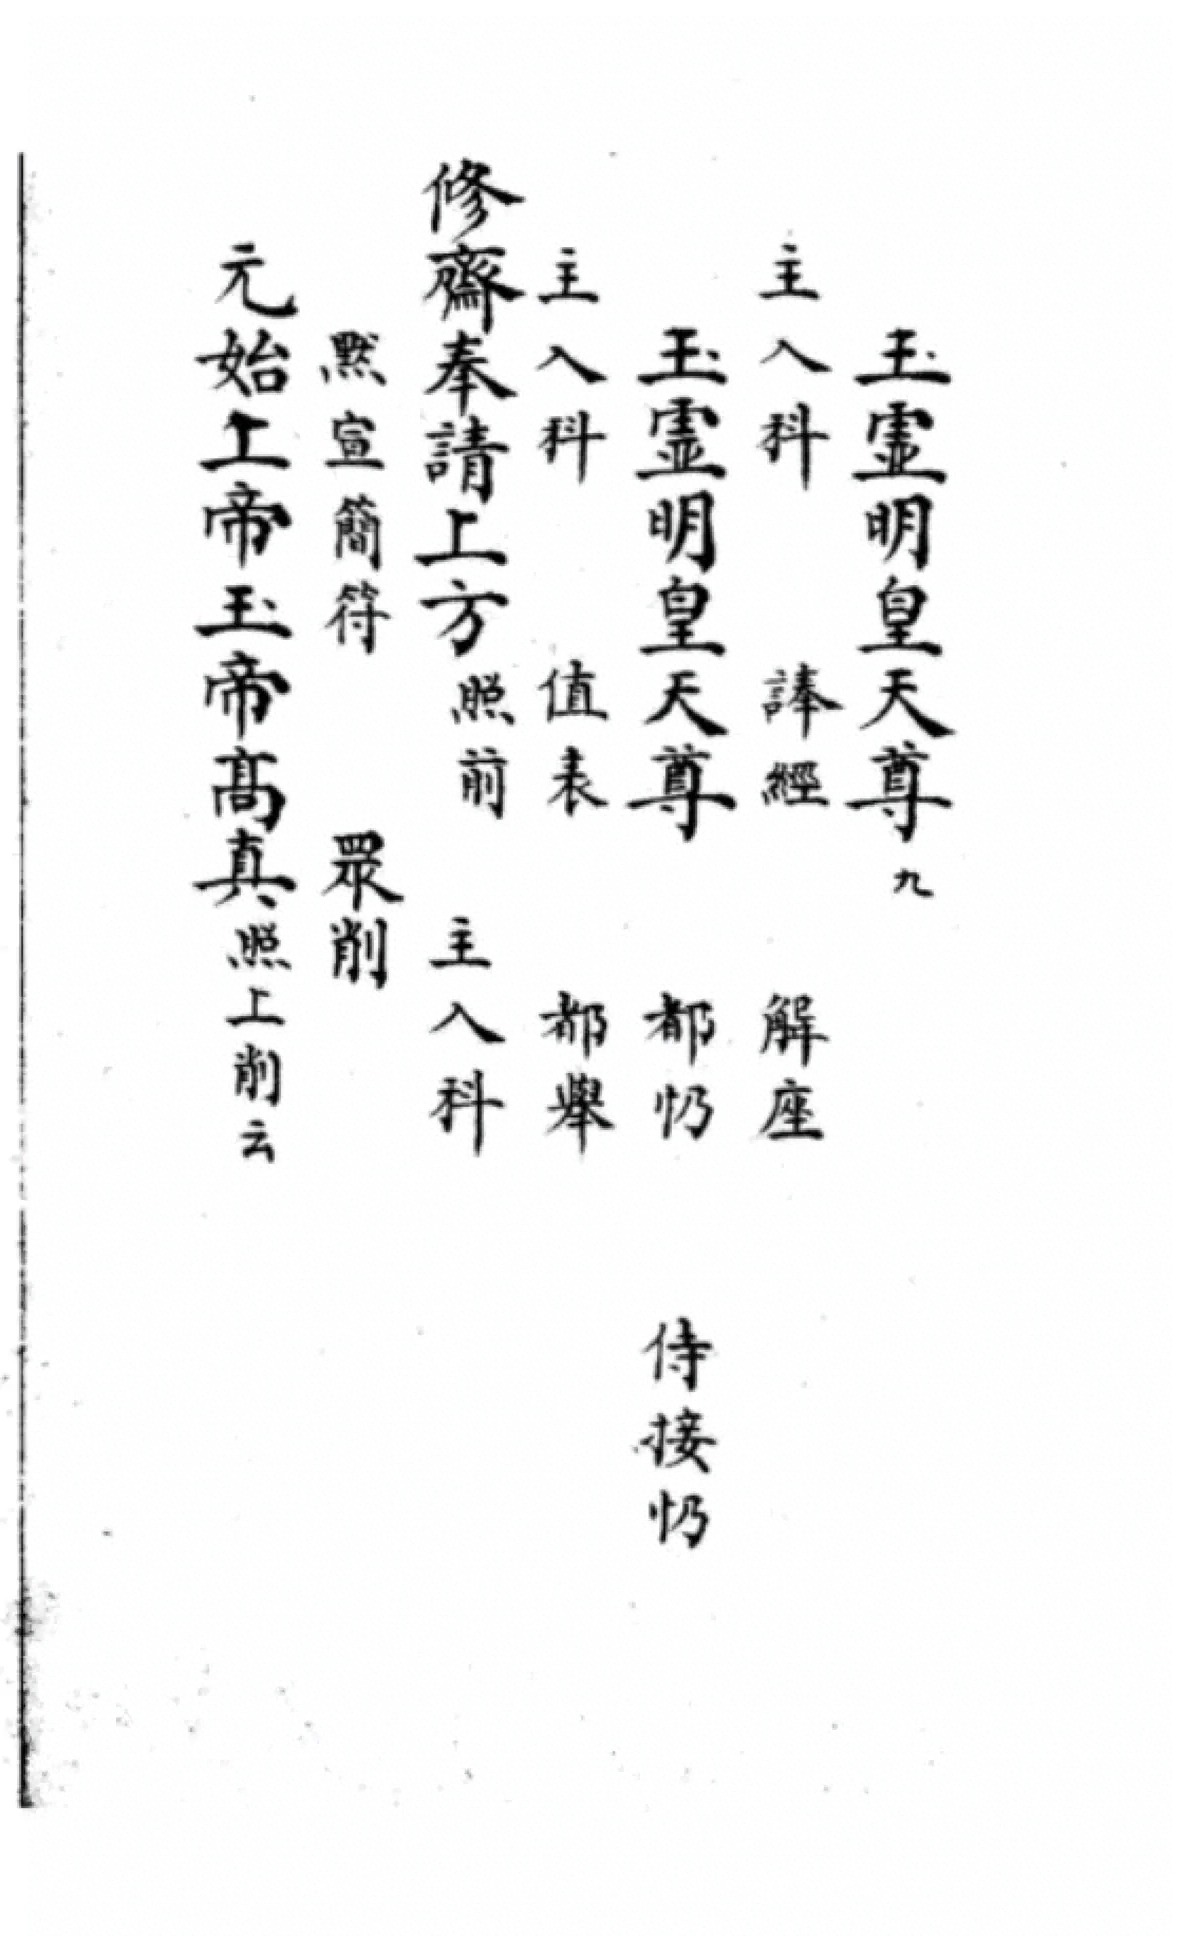 玉霊明皇天尊九
主入科 諱經 解座
玉霊明皇天尊 都忇 侍接忇
主入科 值表 都舉
修齋奉請上方照前 主入科
默宣簡符 眾削
元始上帝玉帝高真照上削云